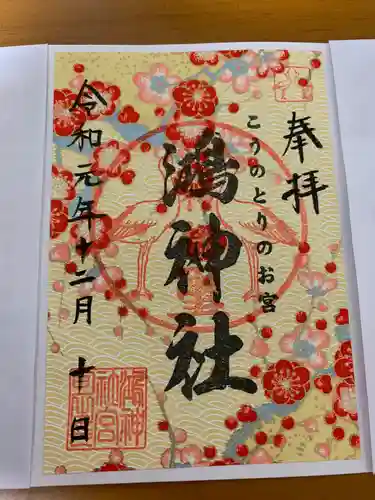 奉拝
こうのとりのお宮
鴻神社
令和元年十二月十日
鴻神
社宮
司印